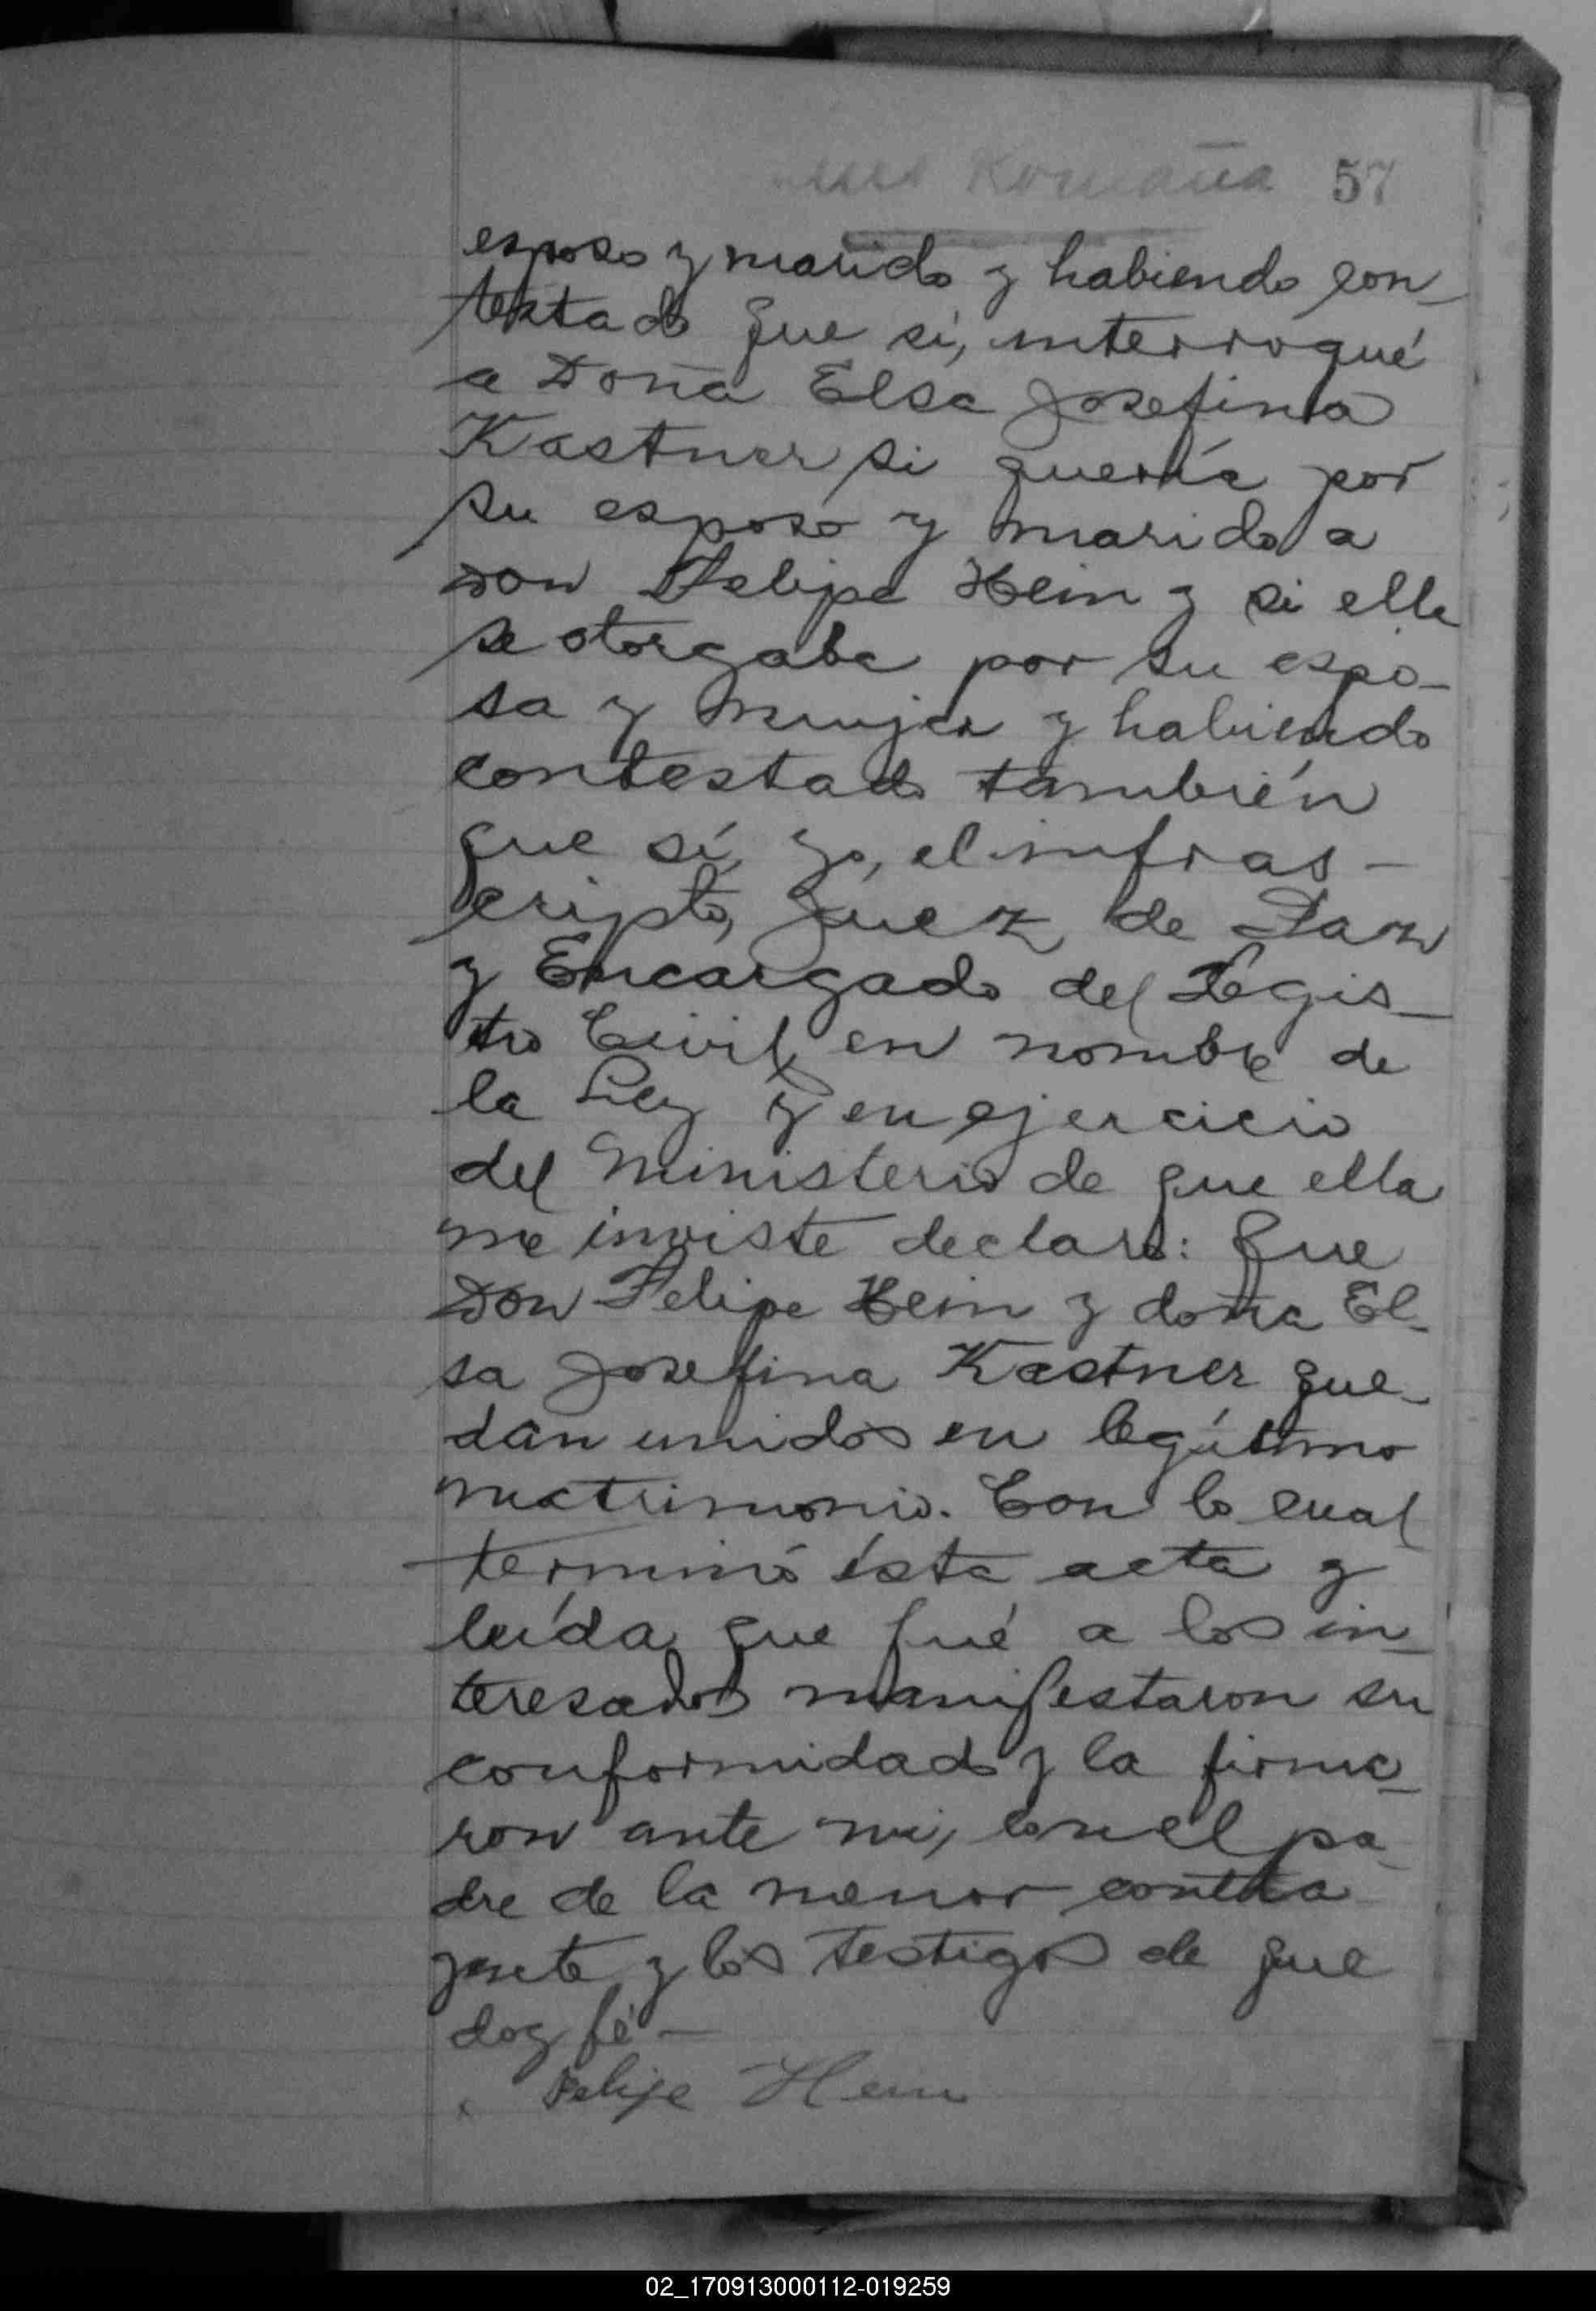 Romaña 57
esposo y marido y habiendo con-
testado que sí, interrogué
a Doña Elsa Josefina
Kastner si quería por
su esposo y marido a
Don Felipe Hein y si ella
se otorgaba por su espo-
sa y mujer y habiendo
contestado también
que sí, yo, el infras-
cripto, Juez de Paz
y Encargado del Regis-
tro Civil, en nombre de
la Ley y en ejercicio
del Ministerio de que ella
me inviste declaro: Que
Don Felipe Hein y doña El-
sa Josefina Kastner que-
dan unidos en legítimo
matrimonio. Con lo cual
terminó ésta acta y
leída que fué a los in-
teresados manifestaron su
conformidad y la firma-
ron ante mi, con el pa-
dre de la menor contra
yente y los testigos de que
doy fé-
Felipe Hein
02_170913000112-019259